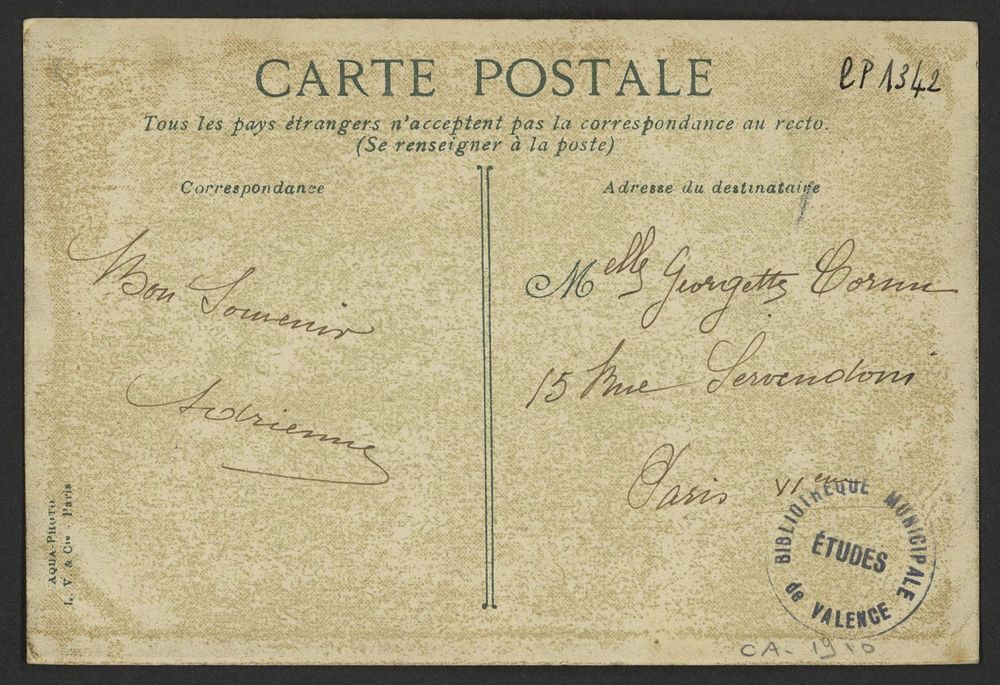 CARTE POSTALE
CP 1342
Tous les pays étrangers n'acceptent pas la correspondance au recto.
(Se renseigner à la poste)
Correspondance
Bon Souvenir
Adrienne
AQUA-PHOTO
L. V. & Cie Paris
Adresse du destinataire
Melle Georgette Cornu
15 Rue Servendoni
Paris VIeme
BIBLIOTHÈQUE MUNICIPALE
ÉTUDES
de VALENCE
CA-1910